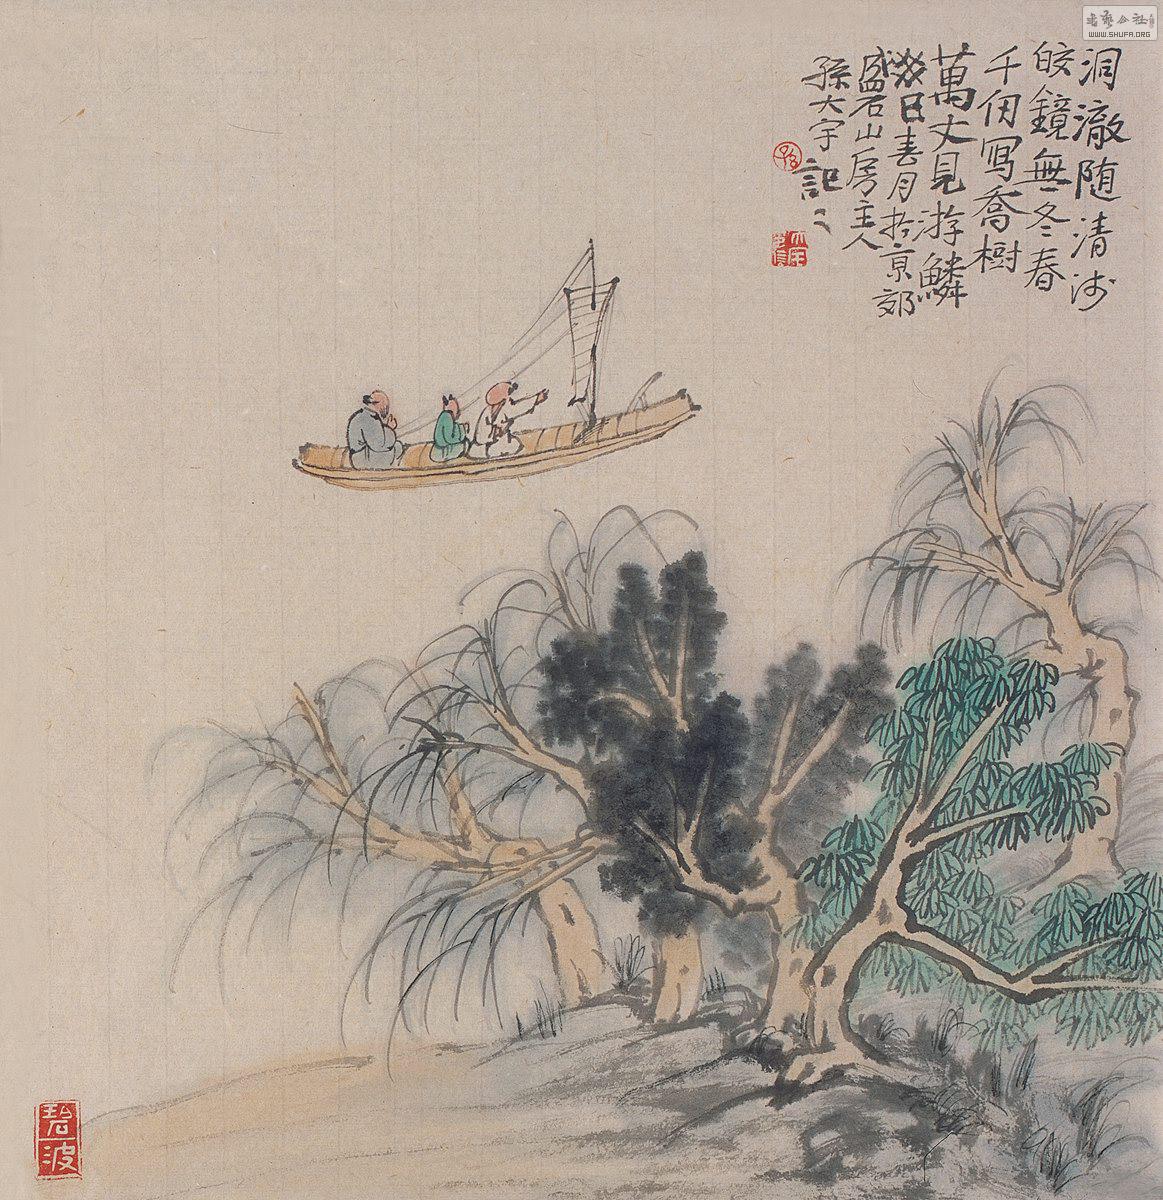 洞澈随清浅
皎鏡無冬春
千仞寫喬樹
萬丈見游鱗
癸巳春月於京郊
盛石山房主人
孫大宇記之
碧波
書藝公社
WWW.SHUFA.ORG